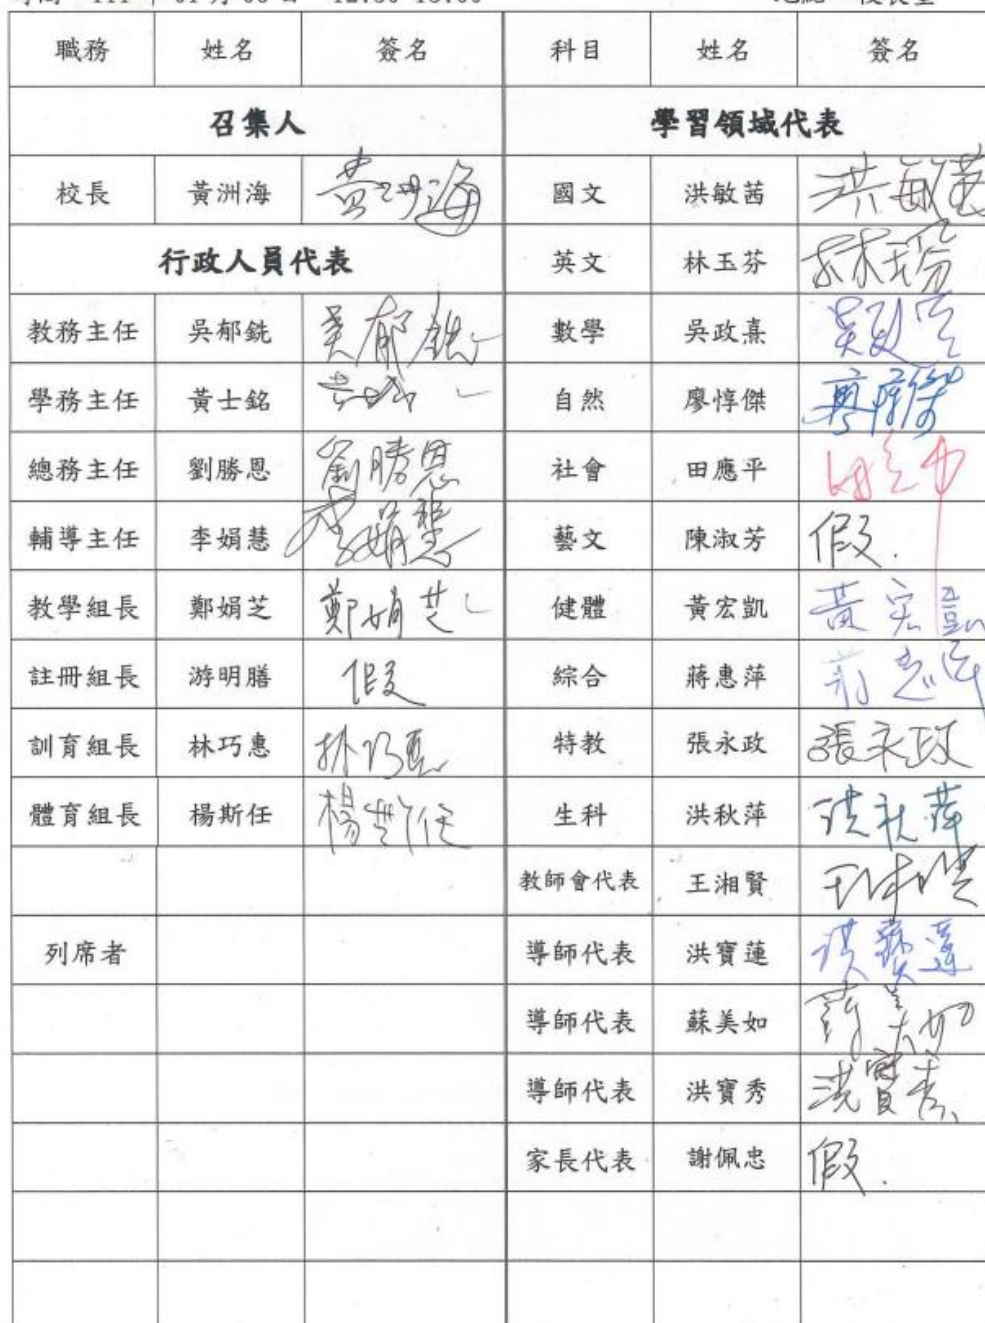 職務 姓名 簽名 科目 姓名 簽名
召集人 學習領域代表
校長 黃洲海 黃洲海 國文 洪敏茜 洪敏茜
行政人員代表 英文 林玉芬 林玉芬
教務主任 吳郁銑 吳郁銑 數學 吳政熹
學務主任 黃士銘 黃士銘 自然 廖惇傑 廖惇傑
總務主任 劉勝恩 劉勝恩 社會 田應平
輔導主任 李娟慧 李娟慧 藝文 陳淑芳 假.
教學組長 鄭娟芝 鄭娟芝 健體 黃宏凱 黃宏凱
註冊組長 游明膳 假 綜合 蔣惠萍
訓育組長 林巧惠 林巧惠 特教 張永政 張永政
體育組長 楊斯任 楊斯任 生科 洪秋萍 洪秋萍
教師會代表 王湘賢
列席者 導師代表 洪寶蓮 洪寶蓮
導師代表 蘇美如 蘇美如
導師代表 洪寶秀 洪寶秀
家長代表 謝佩忠 假.